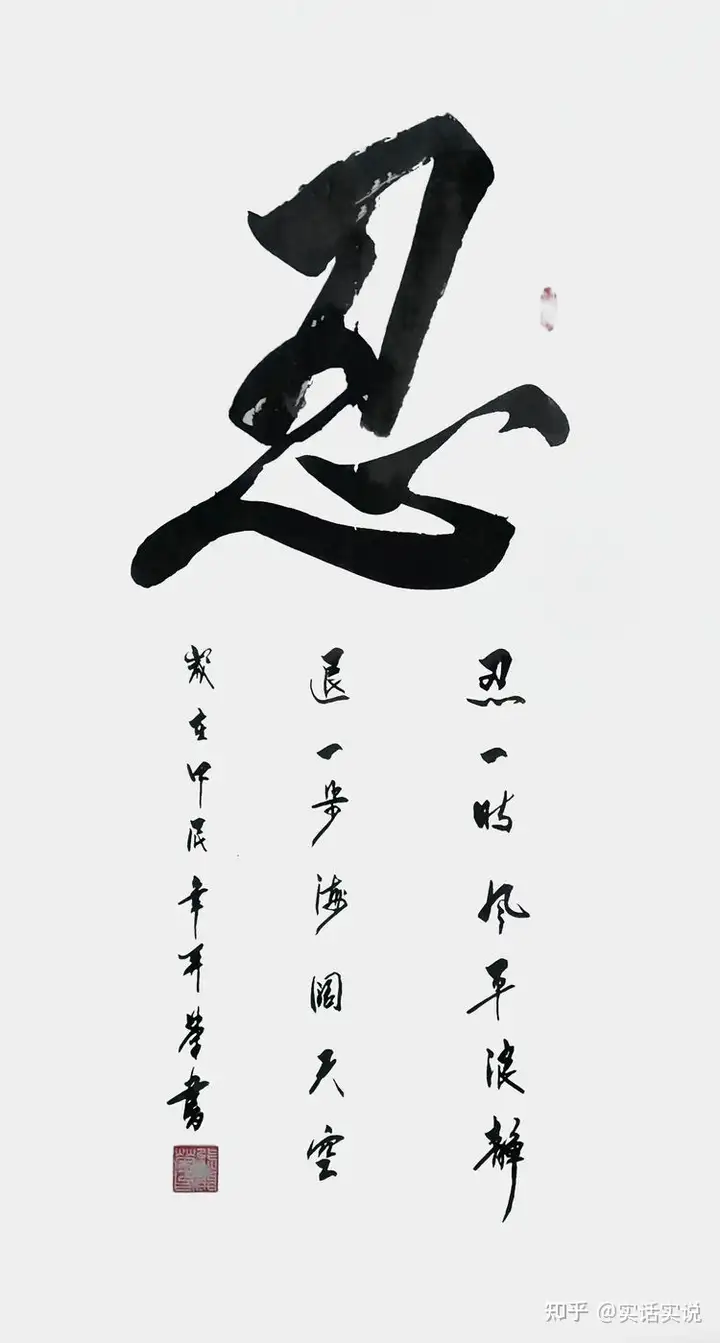 忍
忍一时风平浪静
退一步海阔天空
歲在甲辰年荣書
知乎 @实话实说